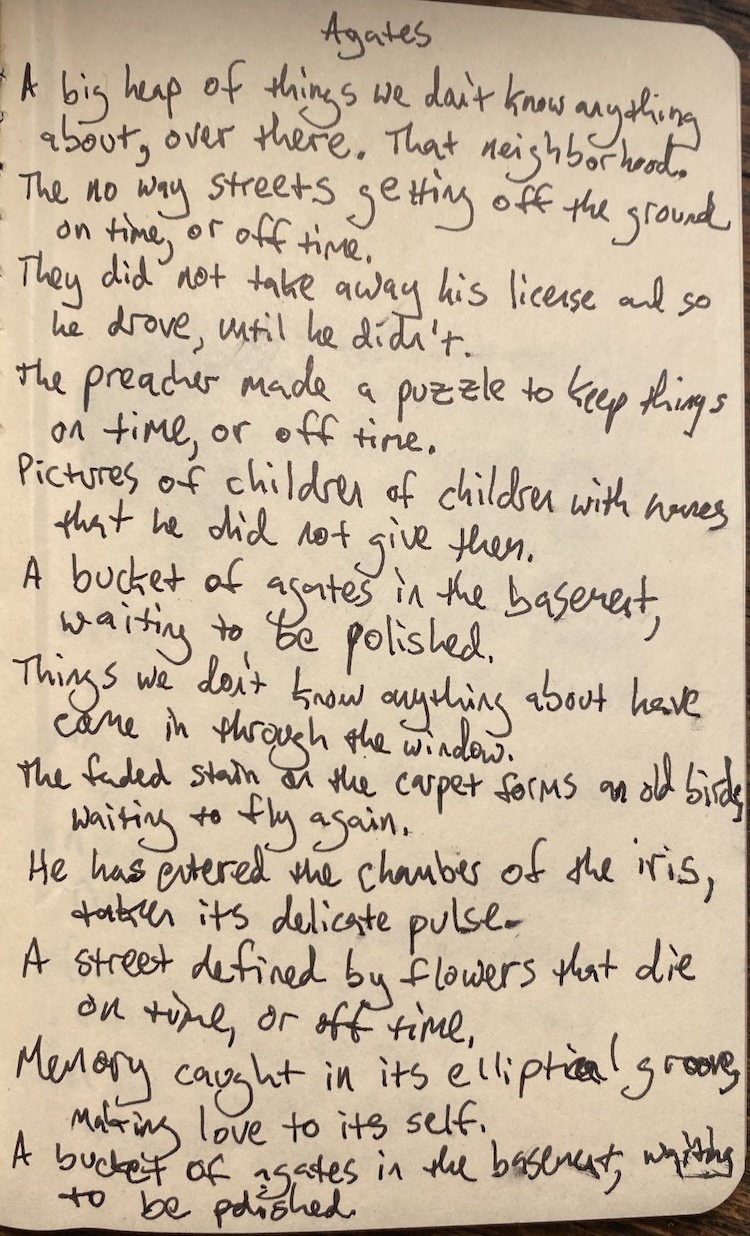 Agates
A big heap of things we don't know anything
about, over there. That neighborhood.
The no way streets getting off the ground
on time, or off time.
They did not take away his license and so
he drove, until he didn't.
The preacher made a puzzle to keep things
on time, or off time.
Pictures of children of children with names
that he did not give them.
A bucket of agates in the basement,
waiting to be polished.
Things we don't know anything about have
come in through the window.
The faded stain on the carpet forms an old bird,
waiting to fly again.
He has entered the chamber of the iris,
taken its delicate pulse.
A street defined by flowers that die
on time, or off time,
Memory caught in its elliptical groove,
making love to its self.
A bucket of agates in the basement, waiting
to be polished.